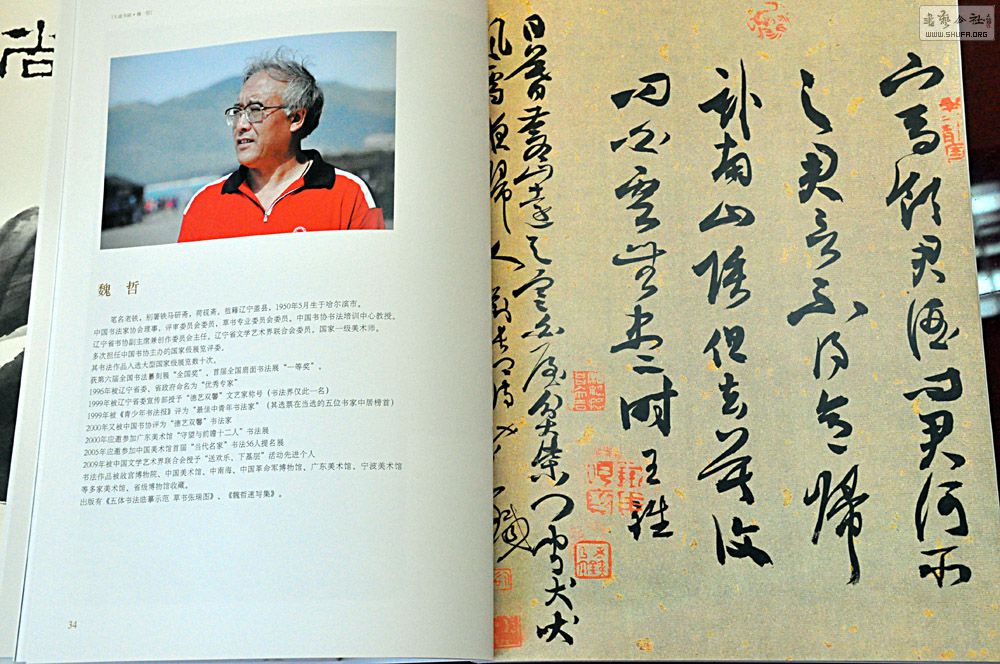 魏 哲
笔名老铁，别署铁马研斋，荷砚斋，祖籍辽宁盖县，1950年5月生于哈尔滨市。
中国书法家协会理事，评审委员会委员，草书专业委员会委员，中国书协书法培训中心教授。
辽宁省书协副主席兼创作委员会主任，辽宁省文学艺术界联合会委员，国家一级美术师。
多次担任中国书协主办的国家级展览评委。
其书法作品入选大型国家级展览数十次。
获第六届全国书法篆刻展“全国奖”，首届全国扇面书法展“一等奖”。
1996年被辽宁省委、省政府命名为“优秀专家”
1999年被辽宁省委宣传部授予“德艺双馨”文艺家称号（书法界仅此一名）
1999年被《青少年书法报》评为“最佳中青年书法家”（其选票在当选的五位书家中居榜首）
2000年又被中国书协评为“德艺双馨”书法家
2000年应邀参加广东美术馆“守望与前瞻十二人”书法展
2005年应邀参加中国美术馆首届“当代名家”书法56人提名展
2009年被中国文学艺术界联合会授予“送欢乐、下基层”活动先进个人
书法作品被故宫博物院、中国美术馆、中南海、中国革命军博物馆、广东美术馆、宁波美术馆
等多家美术馆、省级博物馆收藏。
出版有《五体书法临摹示范 草书张瑞图》、《魏哲速写集》。
34
下馬飲君酒問君何所
之君言不得意歸
卧南山陲但去莫復
問白雲無盡時 王維
日暮蒼山遠天寒白屋貧柴門聞犬吠
風雪夜歸人
WWW.SHUFA.ORG